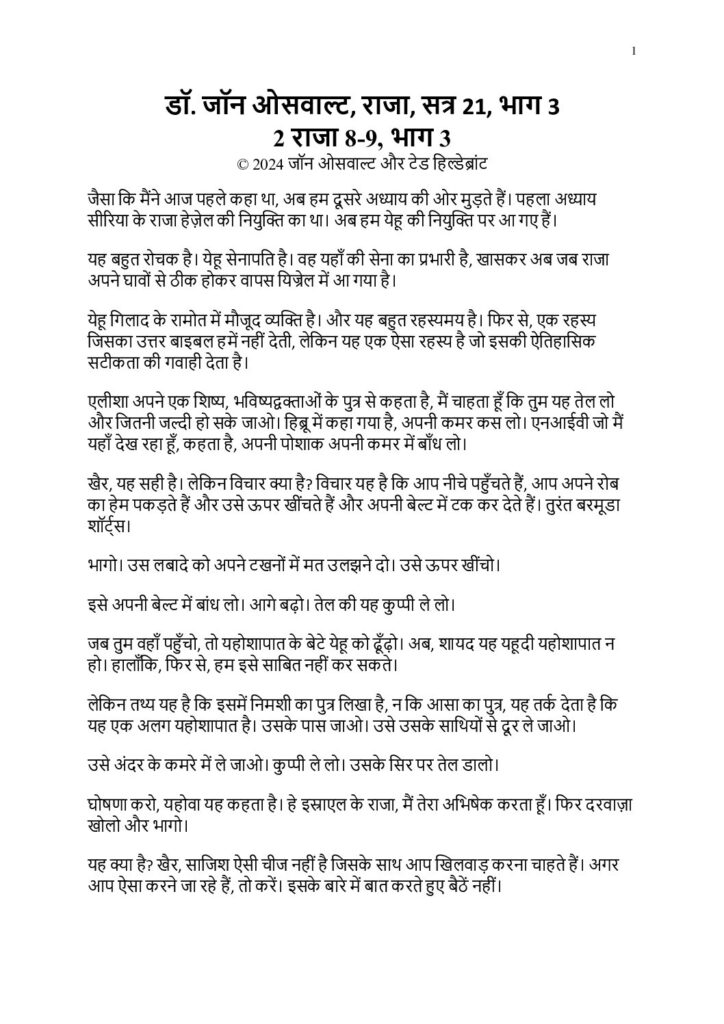 1
डॉ. जॉन ओसवाल्ट, राजा, सत्र 21, भाग 3
2 राजा 8-9, भाग 3
© 2024 जॉन ओसवाल्ट और टेड हिल्डेब्रांट
जैसा कि मैंने आज पहले कहा था, अब हम दूसरे अध्याय की ओर मुड़ते हैं। पहला अध्याय
सीरिया के राजा हेज़ेल की नियुक्ति का था। अब हम येहू की नियुक्ति पर आ गए हैं।
यह बहुत रोचक है। येहू सेनापति है। वह यहाँ की सेना का प्रभारी है, खासकर अब जब राजा
अपने घावों से ठीक होकर वापस यिज्रेल में आ गया है।
येहू गिलाद के रामोत में मौजूद व्यक्ति है। और यह बहुत रहस्यमय है। फिर से, एक रहस्य
जिसका उत्तर बाइबल हमें नहीं देती, लेकिन यह एक ऐसा रहस्य है जो इसकी ऐतिहासिक
सटीकता की गवाही देता है।
एलीशा अपने एक शिष्य, भविष्यद्वक्ताओं के पुत्र से कहता है, मैं चाहता हूँ कि तुम यह तेल लो
और जितनी जल्दी हो सके जाओ। हिब्रू में कहा गया है, अपनी कमर कस लो। एनआईवी जो मैं
यहाँ देख रहा हूँ, कहता है, अपनी पोशाक अपनी कमर में बाँध लो।
खैर, यह सही है। लेकिन विचार क्या है? विचार यह है कि आप नीचे पहुँचते हैं, आप अपने रोब
का हेम पकड़ते हैं और उसे ऊपर खींचते हैं और अपनी बेल्ट में टक कर देते हैं। तुरंत बरमूडा
शॉर्ट्स।
भागो। उस लबादे को अपने टखनों में मत उलझने दो। उसे ऊपर खींचो।
इसे अपनी बेल्ट में बांध लो। आगे बढ़ो। तेल की यह कुप्पी ले लो।
जब तुम वहाँ पहुँचो, तो यहोशापात के बेटे येहू को ढूँढ़ो। अब, शायद यह यहूदी यहोशापात न
हो। हालाँकि, फिर से, हम इसे साबित नहीं कर सकते।
लेकिन तथ्य यह है कि इसमें निमशी का पुत्र लिखा है, न कि आसा का पुत्र, यह तर्क देता है कि
यह एक अलग यहोशापात है। उसके पास जाओ। उसे उसके साथियों से दूर ले जाओ।
उसे अंदर के कमरे में ले जाओ। कुप्पी ले लो। उसके सिर पर तेल डालो।
घोषणा करो, यहोवा यह कहता है। हे इस्राएल के राजा, मैं तेरा अभिषेक करता हूँ। फिर दरवाज़ा
खोलो और भागो।
यह क्या है? खैर, साजिश ऐसी चीज नहीं है जिसके साथ आप खिलवाड़ करना चाहते हैं। अगर
आप ऐसा करने जा रहे हैं, तो करें। इसके बारे में बात करते हुए बैठें नहीं।